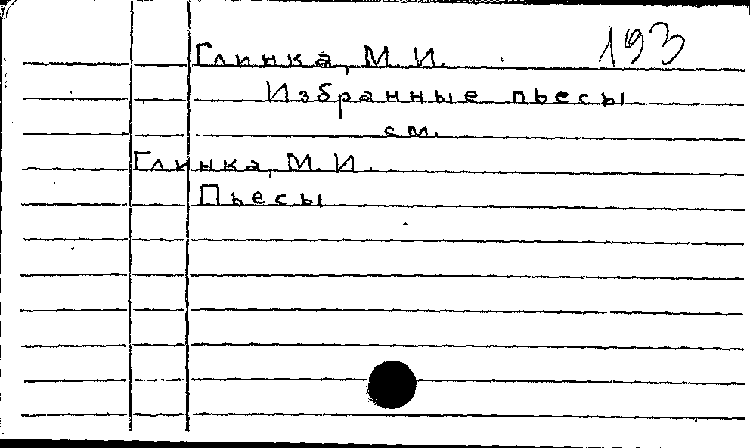 193
Глинка, М. И.
Избранные пьесы
см.
Глинка, М. И.
Пьесы